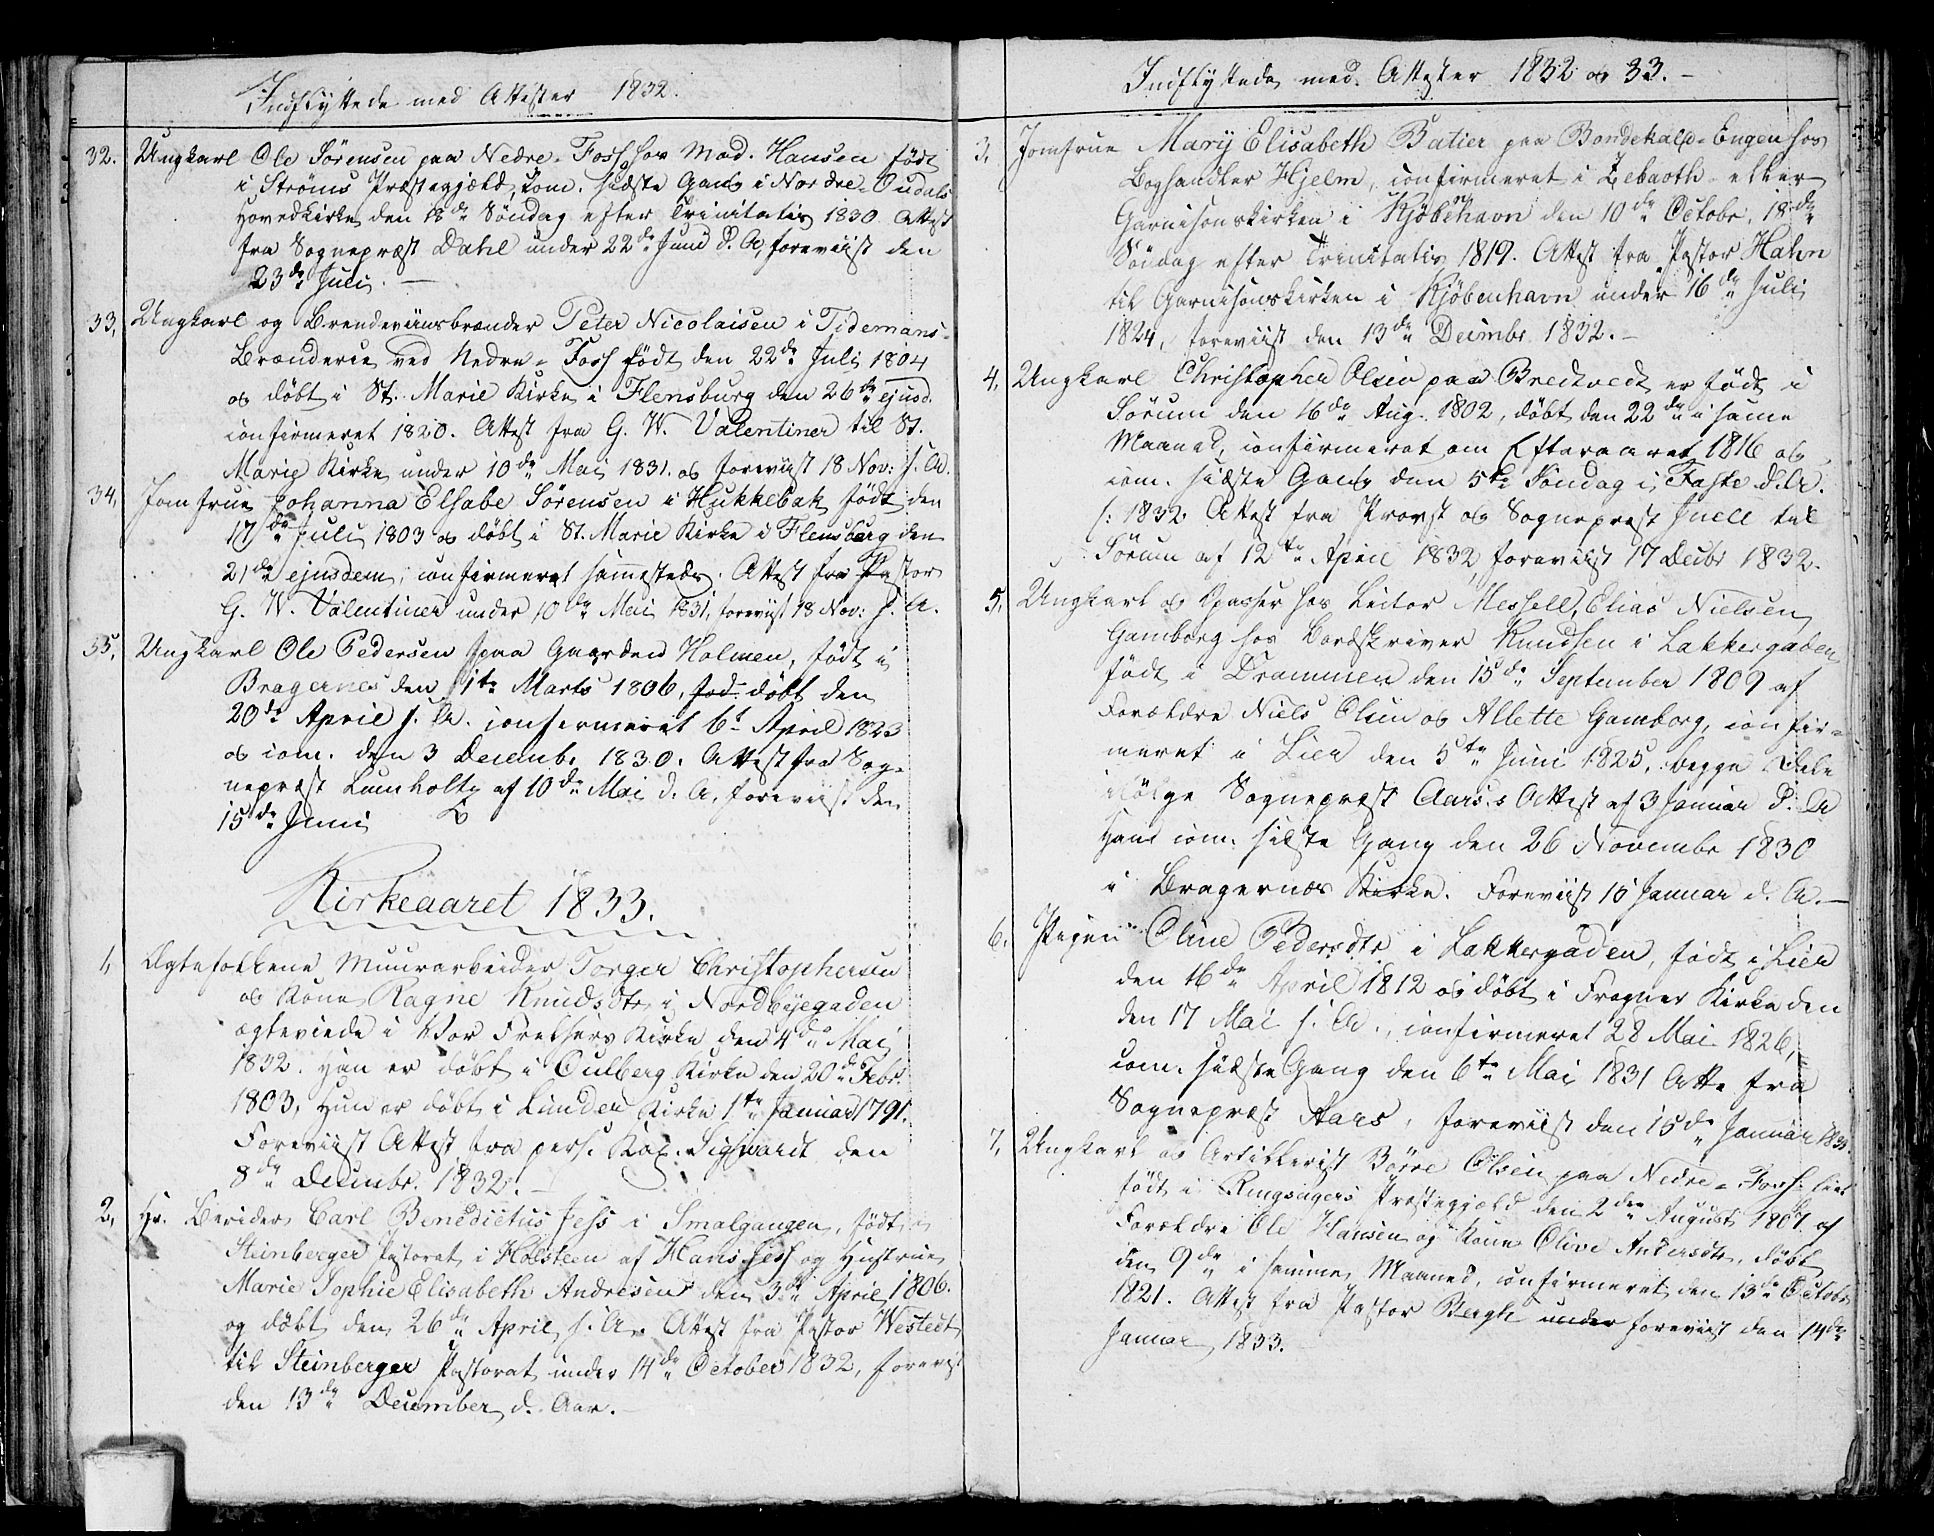 Indflyttede med Attester 1832.
32. Ungkarl Ole Sörensen paa Nedre-Foss hos Mad. Hansen födt
i Ströms Præstegjæld, com. sidste Gang i Nordre-Oudals
Hovedkirke den 18de Söndag efter Trinitatis 1830. Attest
fra Sognepræst Dahl under 22de Juni d. A, foreviist den
23de Juli. —
33, Ungkarl og Brendeviinsbrænder Peter Nicolaisen i Tidemans-
Brænderie ved Nedre-Foss födt den 22de Juli 1804
og döbt i St. Marie Kirke i Flensburg den 26de ejusd.
confirmeret 1820. Attest fra G. W. Valentiner til St.
Marie Kirke under 10de Mai 1831. og foreviist 18 Nov: s. A.
34, Jomfrue Johanna Elsabe Sörensen i Hukkebak födt den
17de Juli 1803 og döbt i St. Marie Kirke i Flensburg den
21de ejusdem, confirmeret sammesteds. Attest fra Pastor
G. W. Valentiner under 10de Mai 1831, foreviist 18 Nov: s. A.
35, Ungkarl Ole Pedersen paa Gaarden Holmen, födt i
Bragernes den 1te Marts 1806, döbt den
20de April s. A. confirmeret 6t April 1823
og com. den 3 Decembr. 1830. Attest fra Sog-
nepræst Lumholtz af 10de Mai d. A, foreviist den
15de Juni
Kirkeaaret 1833.
1, Ægtefolkene Muurarbeider Torger Christophersen
og Kone Ragne Knudsdtr i Nordbyegaden
ægteviede i Vor Frelsers Kirke den 4de Mai
1832. Han er döbt i Kirke den 20de Febr.
1803, Hun er döbt i Lunder Kirke 1te Januar 1791.
Foreviist Attest fra pers. Kap. Sigwardt den
8de Decembr. 1832. —
2, Hr. Berider Carl Benedictus Jess i Smalgangen, födt i
Steinberger Pastorat i Holsteen af Hans Jess og Hustrue
Marie Sophie Elisabeth Andresen den 3de April 1806.
og döbt den 26de April s. A. Attest fra Pastor Westedt
til Steinberger Pastorat under 14de October 1832, foreviist
den 13de December d. Aar. —
Indflyttede med Attester 1832 og 33. —
3, Jomfrue Mary Elisabeth Batier paa Bondekald-Engen hos
Boghandler Hjelm, confirmeret i Zebaoth- eller
Garnisonskirken i Kjöbenhavn den 10de Octobr, 18de
Söndag efter Trinitatis 1819. Attest fra Pastor Hahn
til Garnisonskirken i Kjöbenhavn under 16de Juli
1824, foreviist den 13de Decmbr. 1832. —
4, Ungkarl Christopher Olsen paa Bredtvedt er födt i
Sörum den 16de Aug. 1802, döbt den 22de i samme
Maaned, confirmeret om Efteraaret 1816 og
com. sidste Gang den 5te Söndag i Faste d. A.
s: 1832. Attest fra Provst og Sognepræst Juell til
Sörum af 12te April 1832, foreviist 17 Decbr 1832.
5, Ungkarl og Opasser hos Lector Messell, Elias Nielsen
Gamborg hos Bordskriver Knudsen i Lakkergaden
födt i Drammen den 15de September 1809 af
Forældre Niels Olsen og Allette Gamborg, confir-
meret i Lier den 5te Juni 1825, begge Dele
ifölge Sognepræst Aars.s Attest af 3 Januar d. A
Hans com. sidste Gang den 26 Novembr 1830
i Bragernæs Kirke. Foreviist 15 Januar d. A. —
6. Pigen Oline Pedersdtr i Lakkergaden, födt i Lier
den 16de April 1812 og döbt i Frogner Kirke den
den 17 Mai s. A., confirmeret 28 Mai 1826,
com. sidste Gang den 6te Mai 1831 Atte fra
Sognepræst Aars, foreviist den 15de Januar 1833.
7, Ungkarl og Artillerist Börre Olsen paa Nedre-Foss.
födt i Ringsagers Præstegjæld den 2den August 1807. af
Forældre Ole Hansen og Kone Olive Andersdtr, döbt
den 9de i samme Maaned, confirmeret den 13de Octobr
1821. Attest fra Pastor Bergh under foreviist den 14de
Januar 1833.